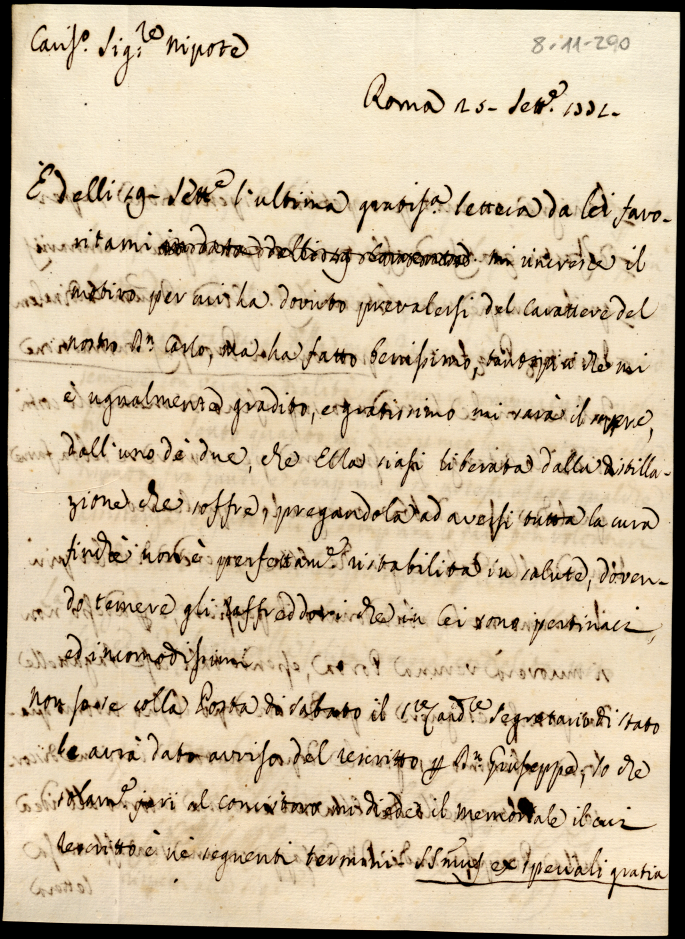 8-11-290
Cariss.o Sig.re Nipote
Roma 25. Sett.e
È delli 19. Sett.e l'ultima gratiss.a lettera da lei favo-
ritami mi incresce il
motivo per cui ha dovuto prevalersi del Carattere del
nostro B.n Carlo, Ma ha fatto benissimo, tanto più che mi
è ugualmente gradito, e gratissimo mi sarà il sapere,
dall'uno de due, che Ella siasi liberata dalla distilla-
zione che soffre, pregandola ad aversi tutta la cura
finchè non è perfettam.e ristabilita in salute, doven-
do temere gli raffreddori che in lei sono pertinaci,
ed incomodissimi
Non so se colla Posta di sabato il Sig.re Card.le Segretario di stato
le avrà dato avviso del rescritto p B.n Giuseppe, Io che
solam.e jeri al concistoro mi diede il memoriale il cui
rescritto è ne seguenti termini: SSmus ex speciali gratia